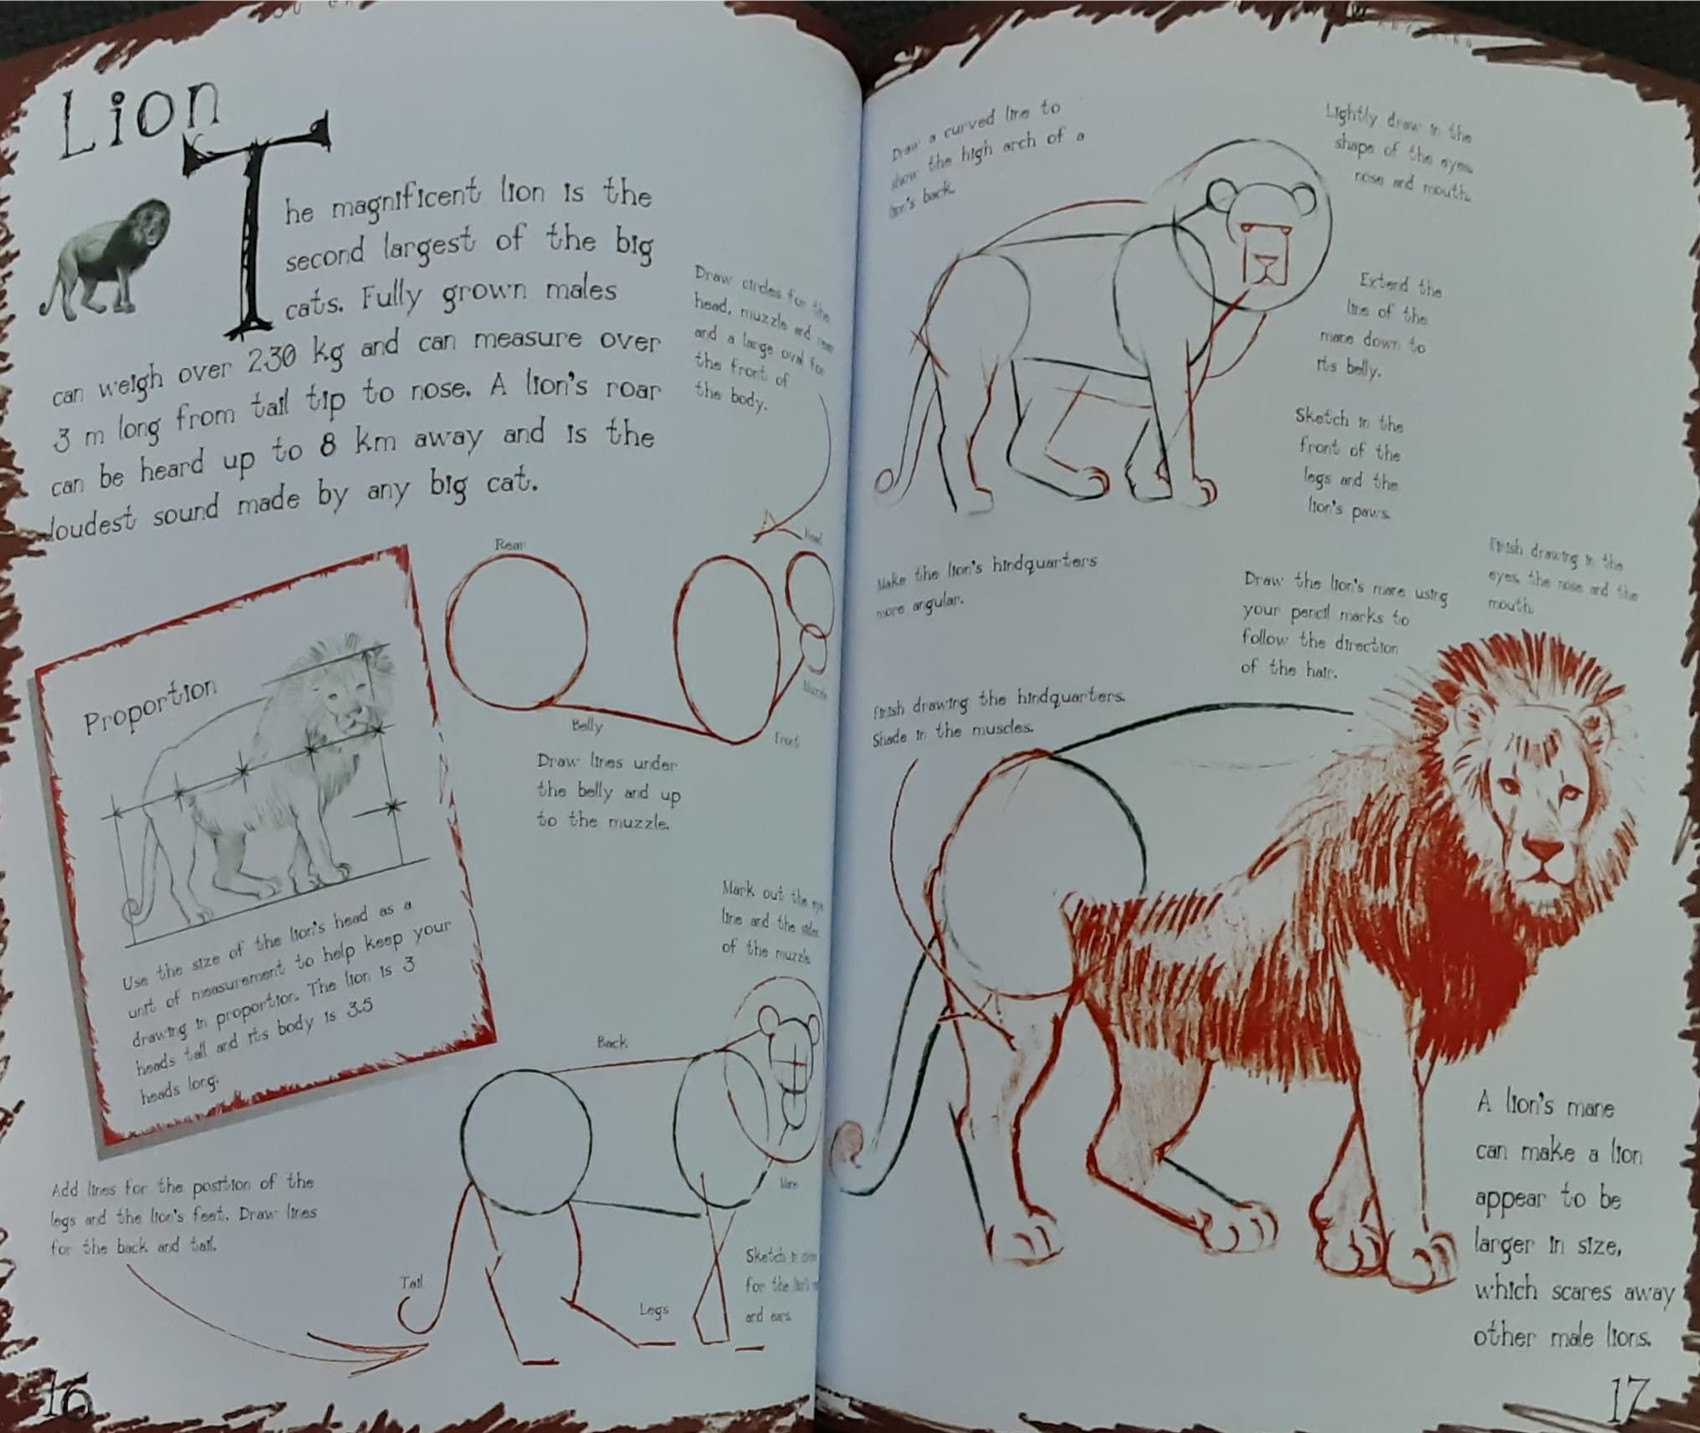 Lion
The magnificent lion is the
second largest of the big
cats. Fully grown males
can weigh over 230 kg and can measure over
3 m long from tail tip to nose. A lion's roar
can be heard up to 8 km away and is the
loudest sound made by any big cat.
Draw circles for the
head, muzzle and rear
and a large oval for
the front of
the body.
Rear
Head
Muzzle
Belly
Front
Draw lines under
the belly and up
to the muzzle.
Proportion
Use the size of the lion's head as a
unit of measurement to help keep your
drawing in proportion. The lion is 3
heads tall and its body is 3.5
heads long.
Mark out the eye
line and the sides
of the muzzle
Back
Add lines for the position of the
legs and the lion's feet. Draw lines
for the back and tail.
Tail
Legs
Sketch in
for the
and ears
16
Draw a curved line to
show the high arch of a
lion's back.
Lightly draw in the
shape of the eyes,
nose and mouth.
Extend the
line of the
mane down to
its belly.
Sketch in the
front of the
legs and the
lion's paws.
Make the lion's hindquarters
more angular.
Draw the lion's mane using
your pencil marks to
follow the direction
of the hair.
Finish drawing in the
eyes, the nose and the
mouth.
Finish drawing the hindquarters.
Shade in the muscles.
A lion's mane
can make a lion
appear to be
larger in size,
which scares away
other male lions.
17